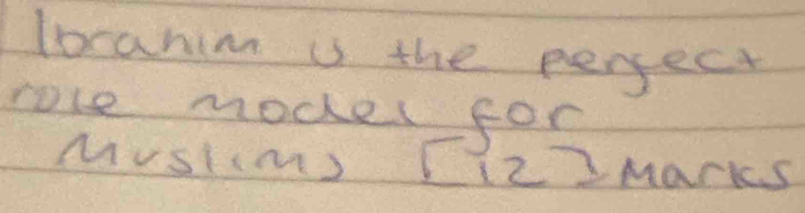 Ibrahim is the perfect
role model for
Muslims [12] Marks